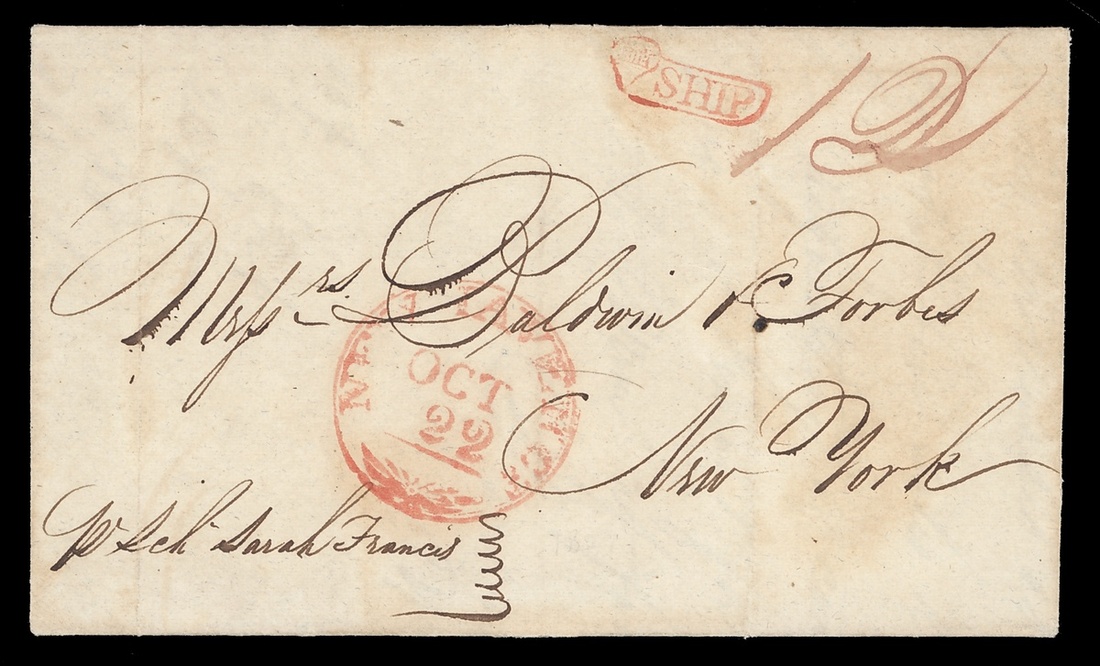 SHIP
Messrs. Baldwin & Forbes
OCT
22
New York
pr Sch Sarah Francis